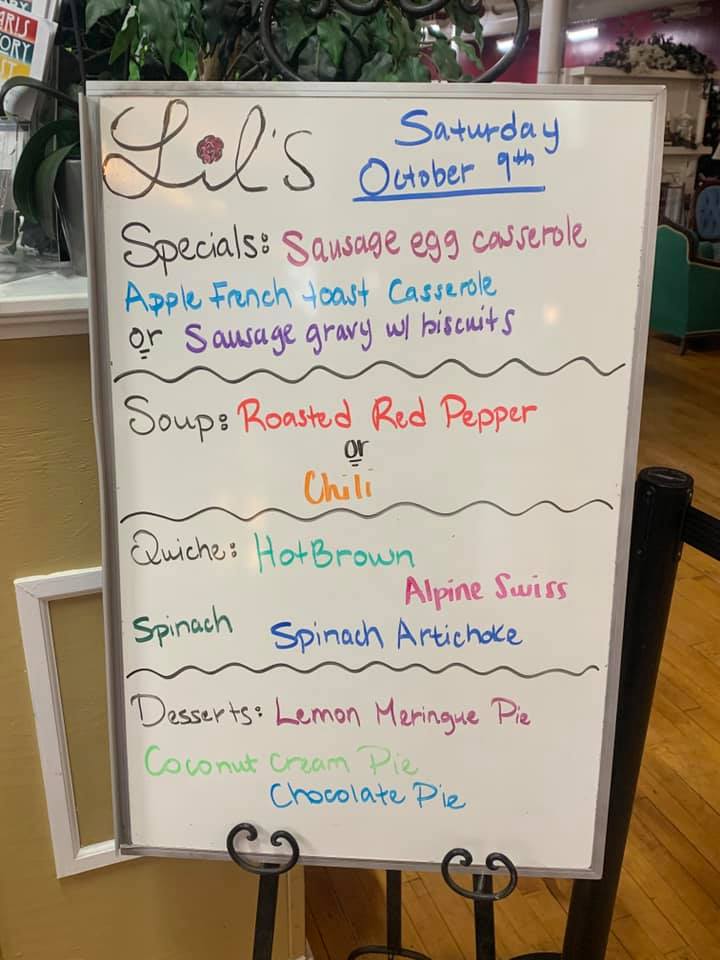 ARIS
ORY
ST
Lil's
Saturday
October 9th
Specials: Sausage egg casserole
Apple French toast Casserole
or Sausage gravy w/ biscuits
Soup: Roasted Red Pepper
or
Chili
Quiche: HotBrown
Alpine Swiss
Spinach Spinach Artichoke
Desserts: Lemon Meringue Pie
Coconut Cream Pie
Chocolate Pie